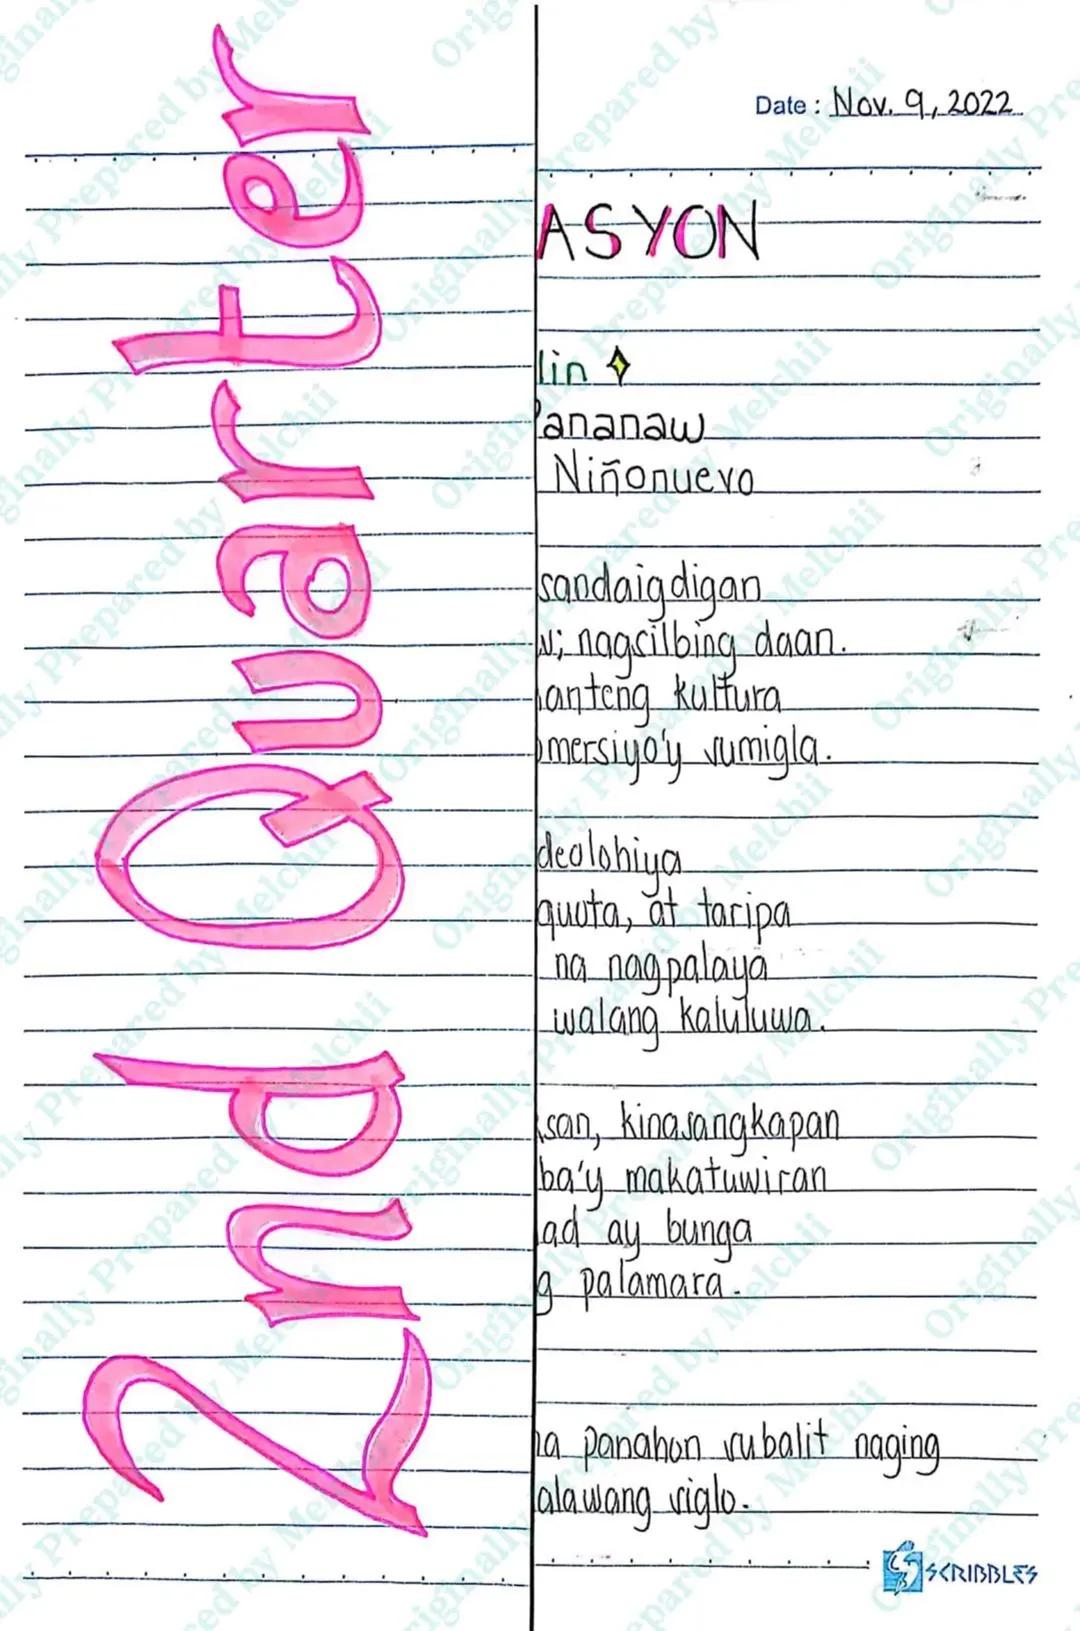 2nd Quarter
Date: Nov. 9, 2022
ASYON
lin
Pananaw
Niñonuevo
sandaigdigan
w; nagsilbing daan.
anteng kultura
omersiyo'y sumigla.
deolohiya
quota, at taripa
na nagpalaya
walang kaluluwa.
san, kinasangkapan
ba'y makatuwiran
ad ay bunga
g palamara.
na panahon subalit naging
alawang siglo.
SCRIBBLES
Originally Prepared by Melchii